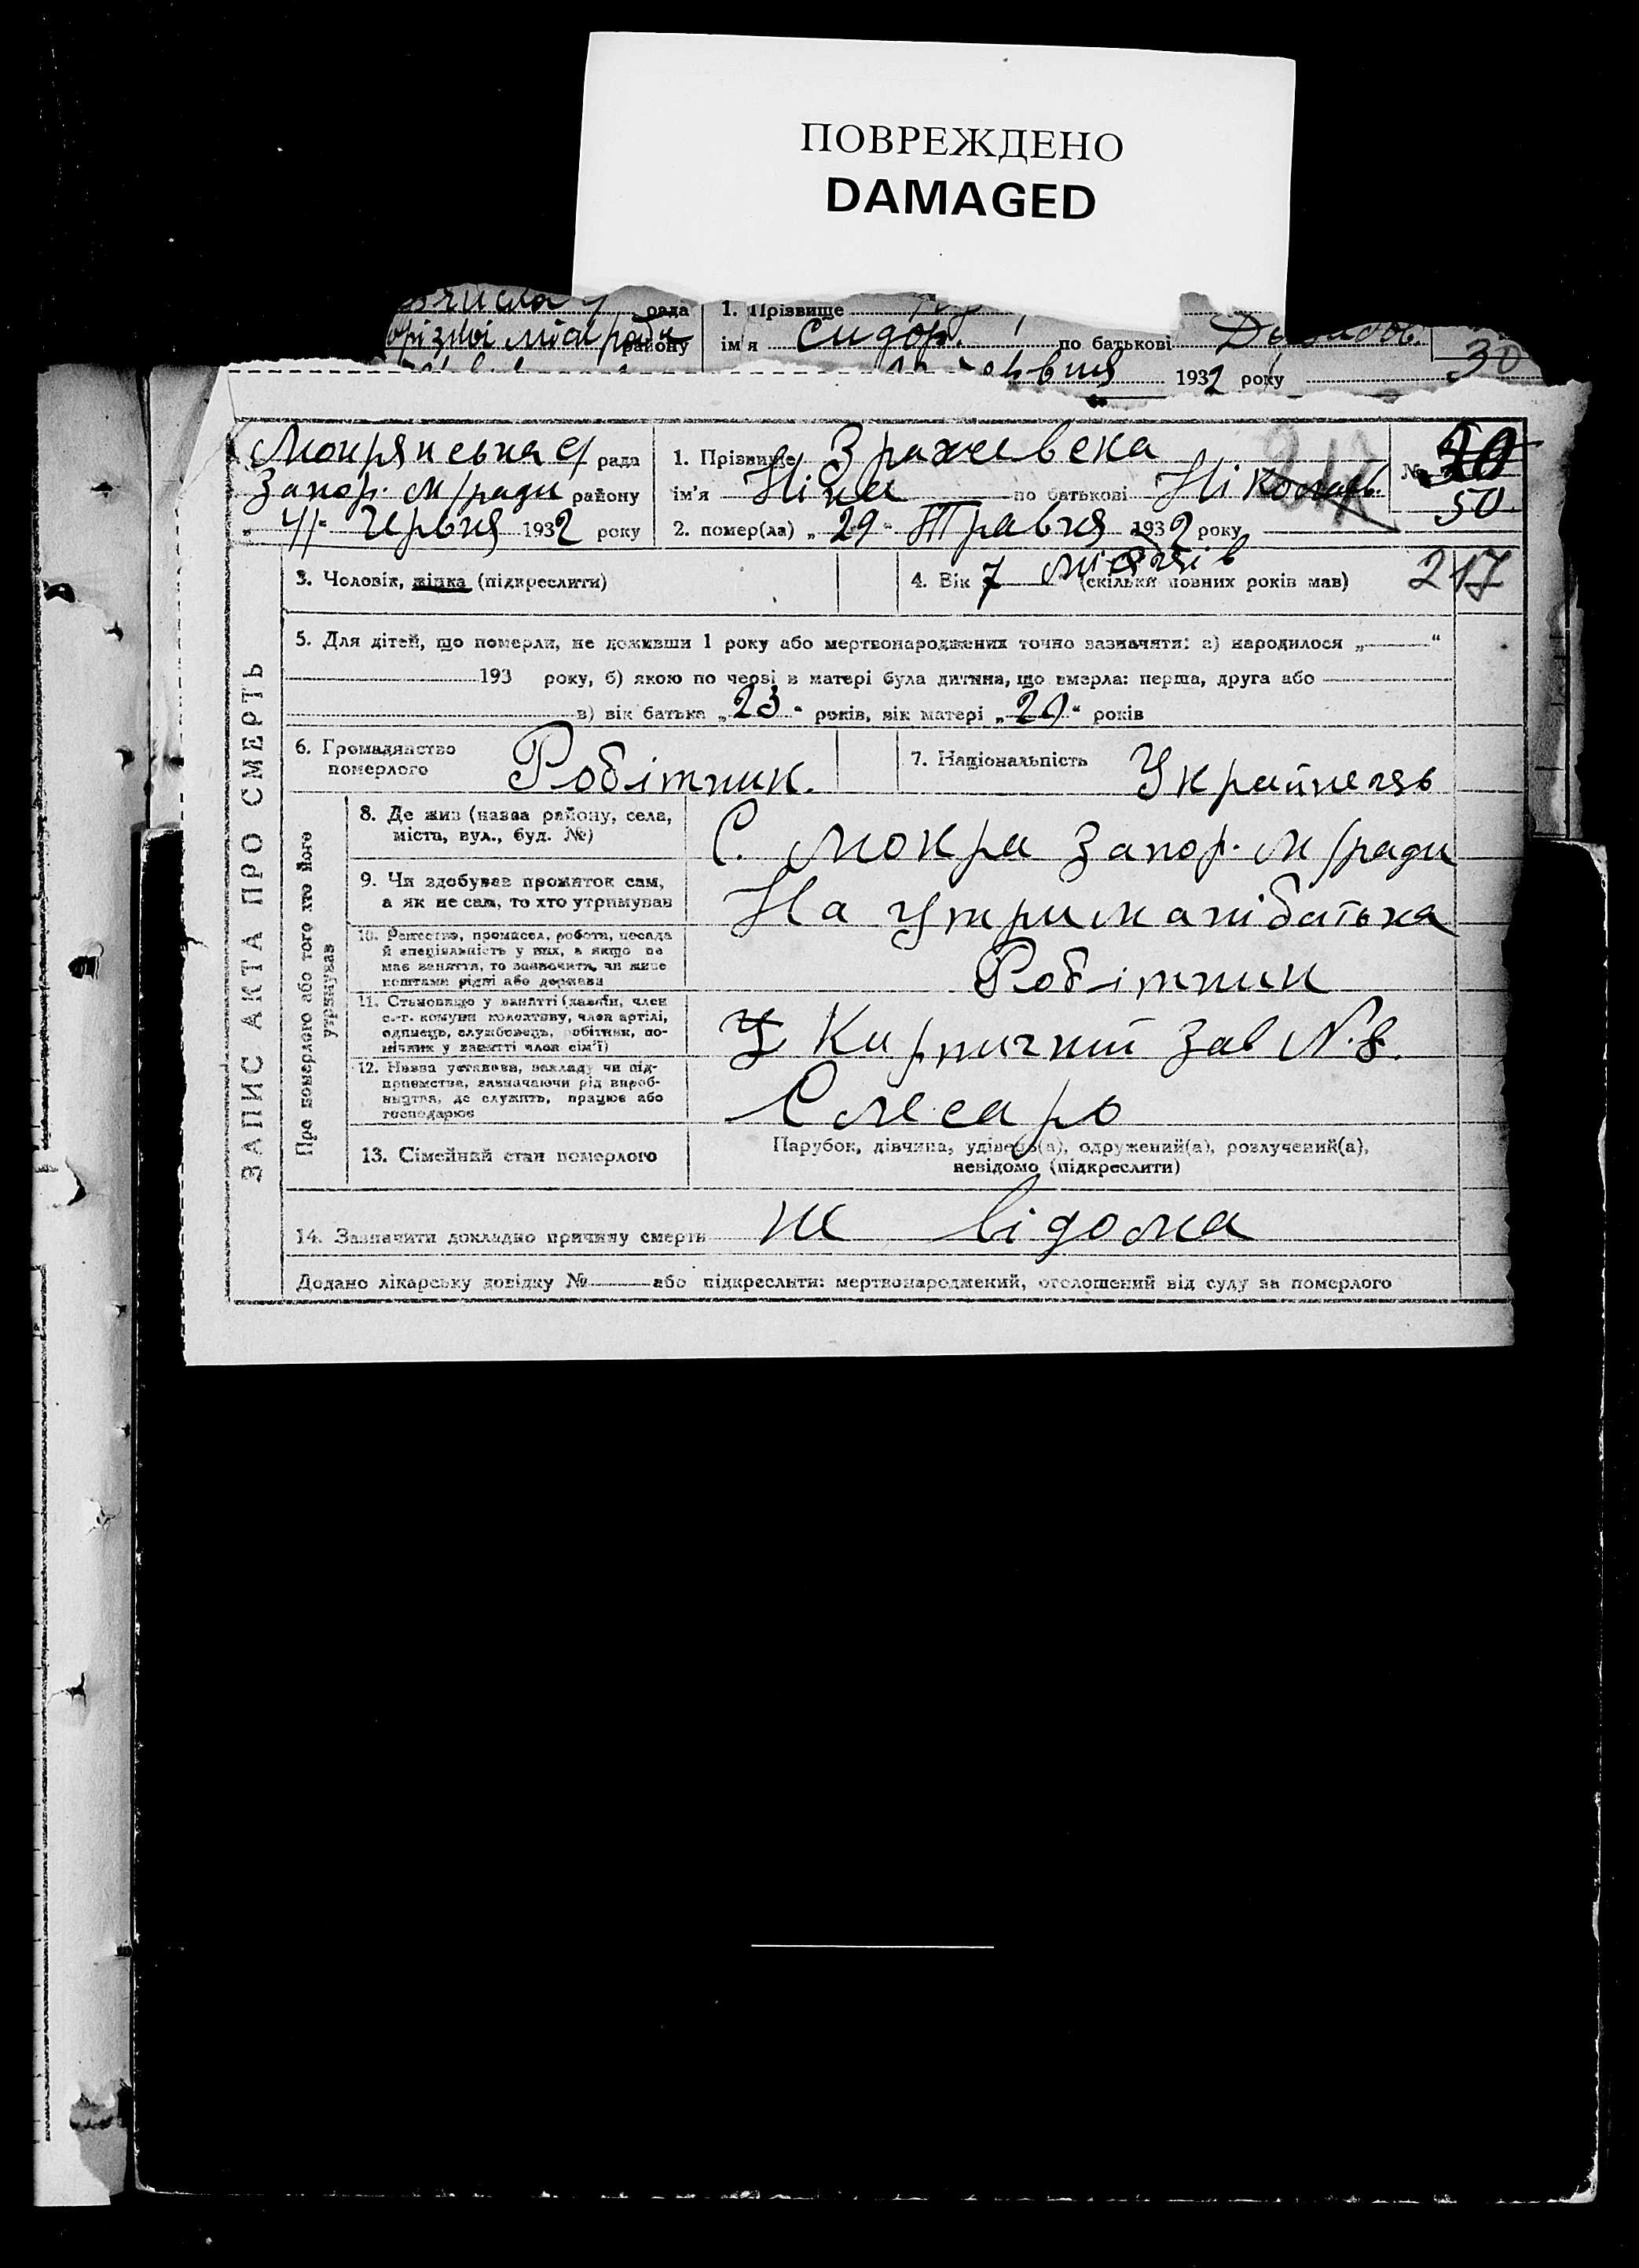 ПОВРЕЖДЕНО
DAMAGED
рада 1. Прізвище
району ім'я Сидор. по батькові
1932 року 30
Мокрянська с/ рада 1. Прізвище Зражевска №
Запор. м/ради району ім'я Ніна по батькові Ніколаєв. 50
Червня 1932 року 2. помер(ла) „29" Травня 1932 року
3. Чоловік, жінка (підкреслити) 4. Вік 7 місяців (скільки повних років мав) 217
5. Для дітей, що померли, не доживши 1 року або мертвонароджених точно зазначити: а) народилося „ "
193 року, б) якою по черзі в матері була дитина, що вмерла: перша, друга або
в) вік батька „23" років, вік матері „20" років
6. Громадянство померлого Робітник. 7. Національність Українець
ЗАПИС АКТА ПРО СМЕРТЬ
Про померлого або того хто його утримував
8. Де жив (назва району, села,
міста, вул., буд. №) С. Мокра Запор. м/ради
9. Чи здобував прожиток сам,
а як не сам, то хто утримував На утримані батька
10. Ремество, промисел, робота, посада
й спеціяльність у них, а якщо не
має заняття, то зазначити, чи живе
коштами рідні або держави Робітник
11. Становище у занятті (хазяїн, член
с.-г. комуни колективу, член артілі,
одинець, службовець, робітник, по-
мічник у занятті член сім'ї) У Кирпичний зав N. 8.
12. Назва установи, закладу чи під-
приємства, зазначаючи рід вироб-
ництва, де служить, працює або
господарює Слесарь
13. Сімейний стан померлого Парубок, дівчина, удівець(а), одружений(а), розлучений(а),
невідомо (підкреслити)
14. Зазначити докладно причину смерти не відома
Додано лікарську довідку № або підкреслити: мертвонароджений, оголошений від суду за померлого